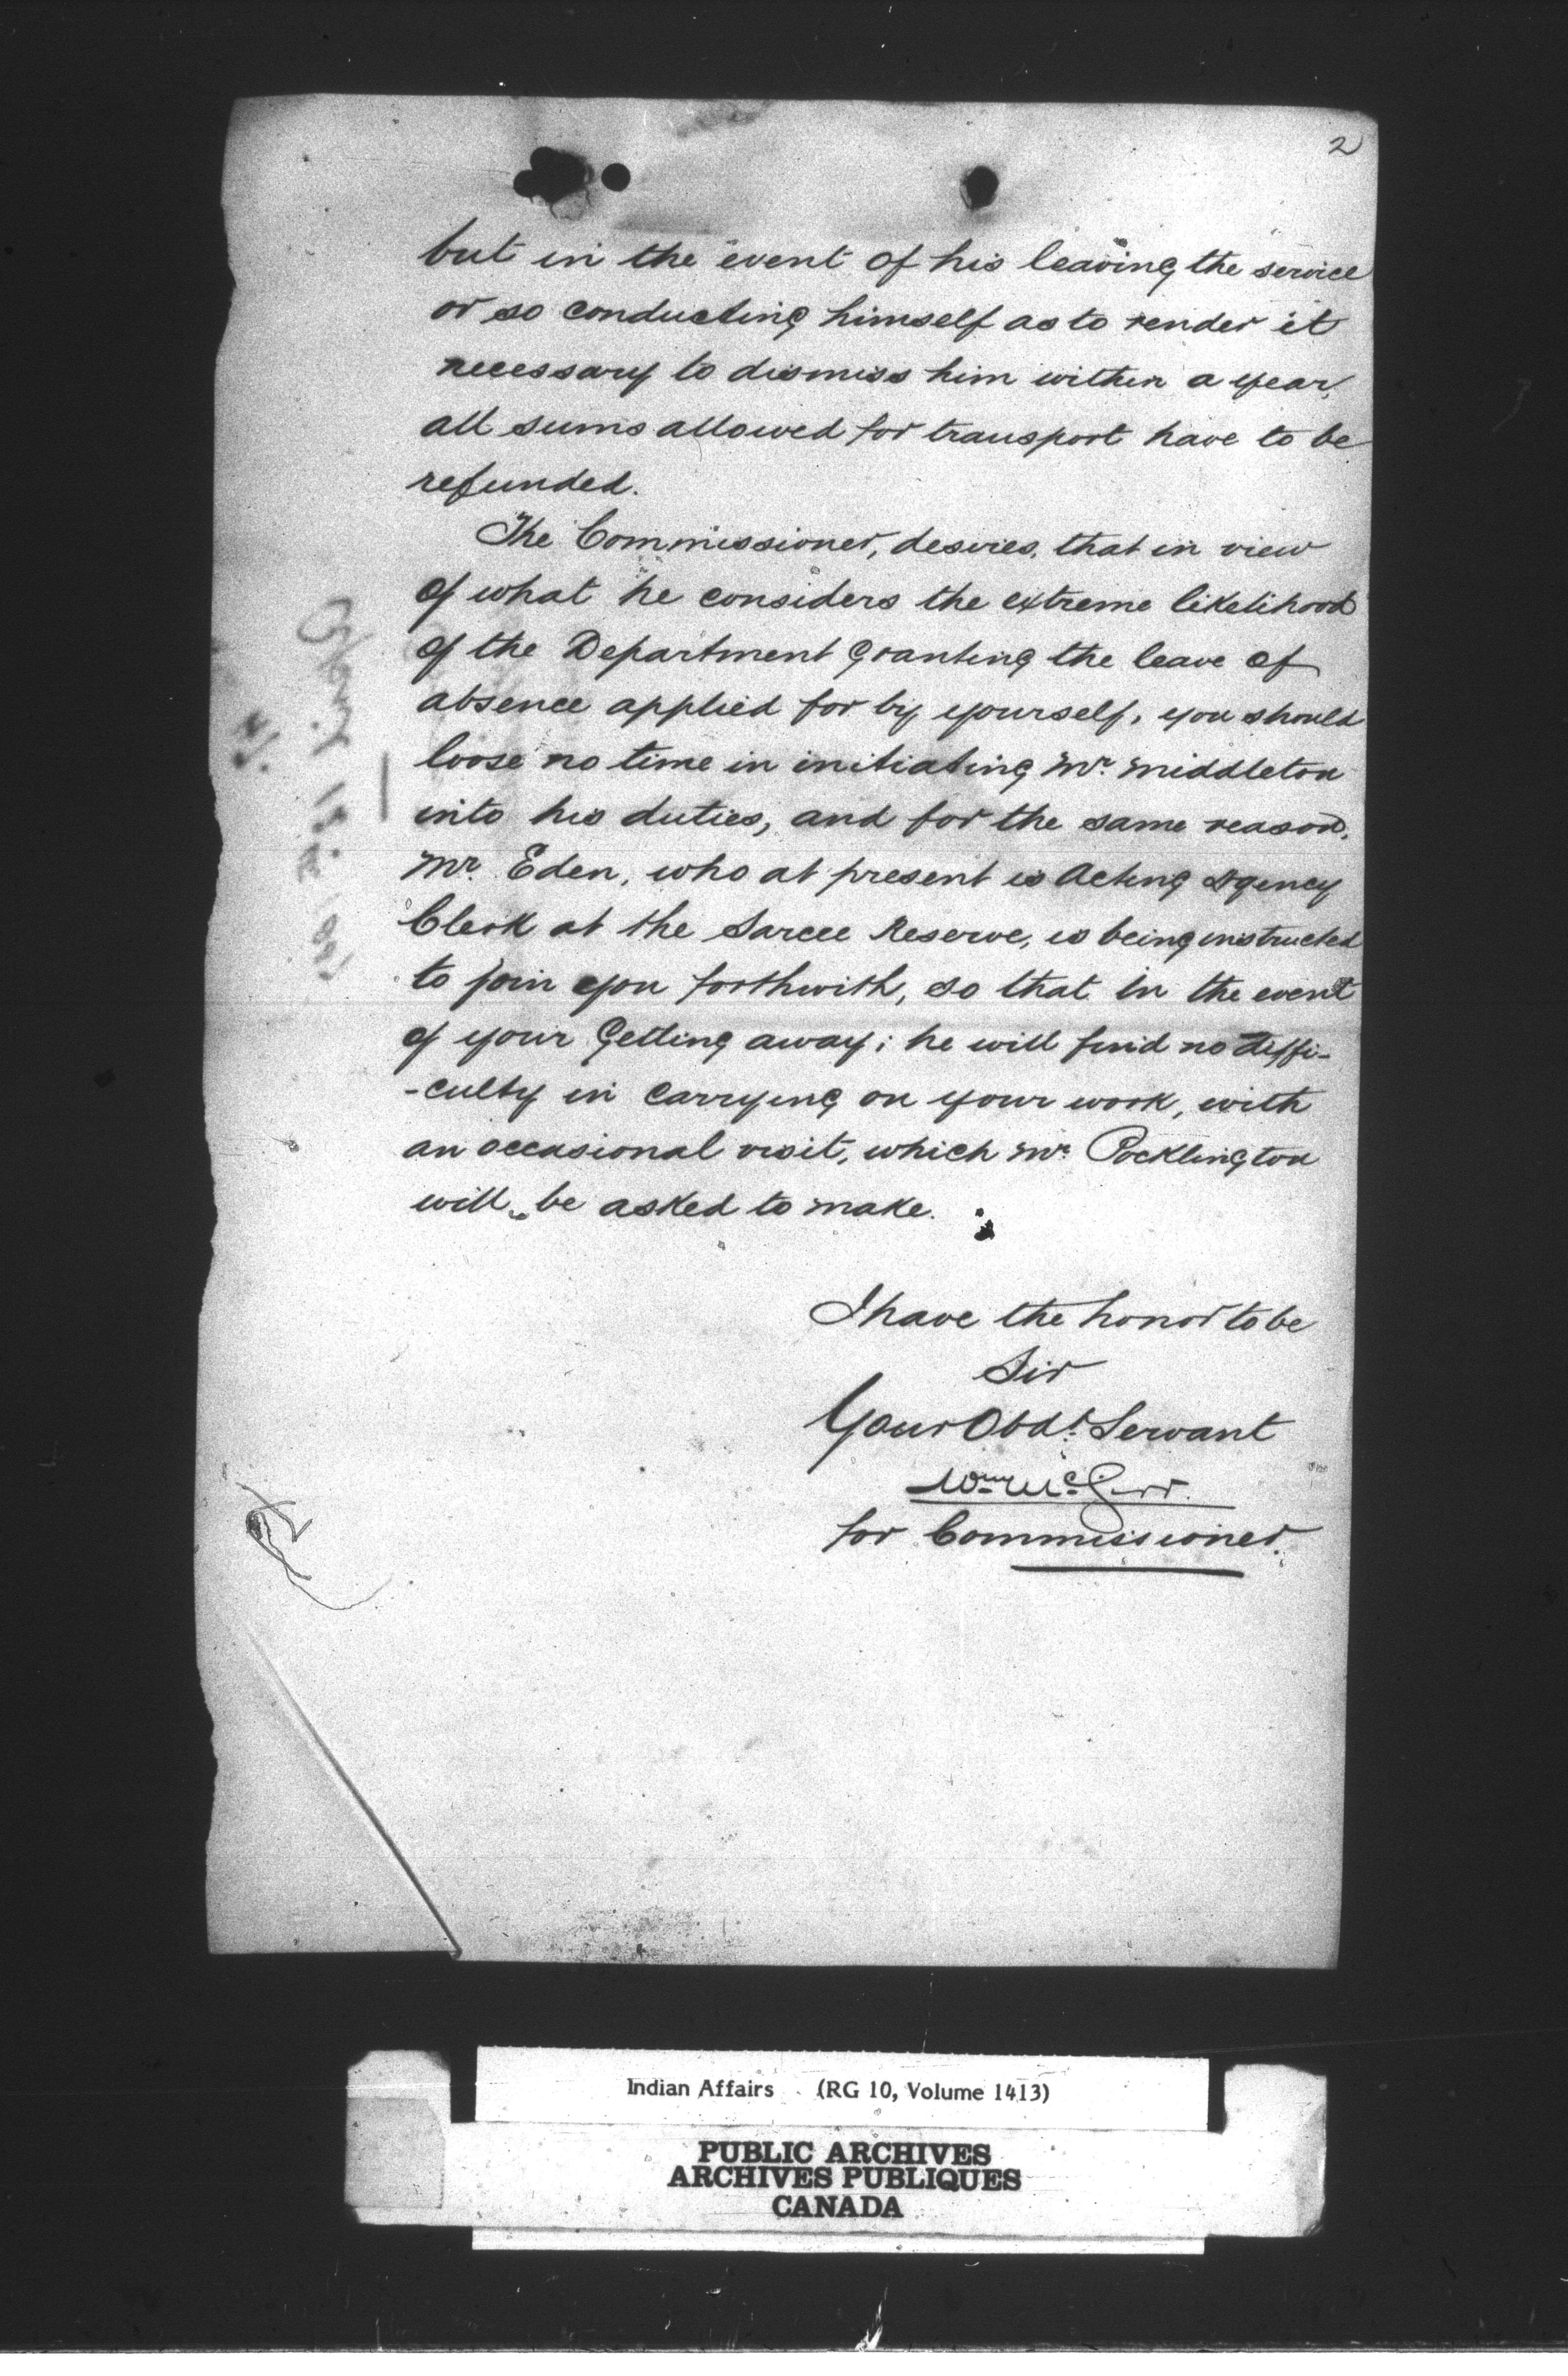 2
but in the event of his leaving the service
or so conducting himself as to render it
necessary to dismiss him within a year,
all sums allowed for transport have to be
refunded.
The Commissioner, desires, that in view
of what he considers the extreme likelihood
of the Department Granting the leave of
absence applied for by yourself, you should
loose no time in initiating Mr. Middleton
into his duties, and for the same reason,
Mr. Eden, who at present is Acting Agency
Clerk at the Sarcee Reserve, is being instructed
to join you forthwith, so that in the event
of your Getting away; he will find no diffi-
-culty in Carrying on your work, with
an occasional visit, which Mr. Pocklington
will be asked to make.
I have the honor to be
Sir
Your Obdt. Servant
Wm McGirr.
for Commissioner.
Indian Affairs (RG 10, Volume 1413)
PUBLIC ARCHIVES
ARCHIVES PUBLIQUES
CANADA